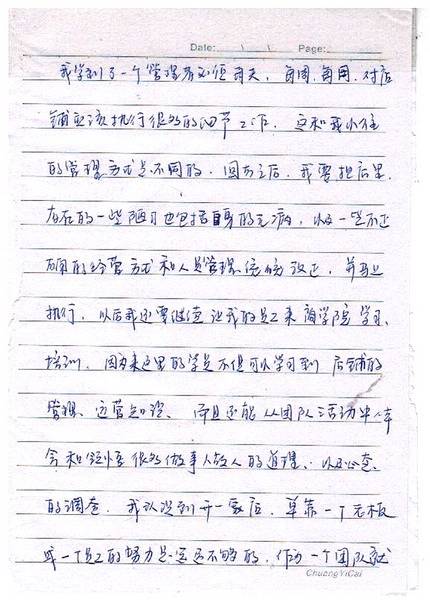 Date: \ \ Page:
我学到了一个管理者必须每天、每周、每月、对店
铺应该执行很多的细节工作，这和我以往
的管理方式是不同的。回去之后，我要把店里
存在的一些陋习也包括自身的毛病，以及一些不正
确的经营方式和人员管理统统改正，并马上
执行，以后我还要继续让我的员工来商学院学习、
培训，因为来这里的学员不但可以学习到店铺的
管理、运营知识、而且还能从团队活动中体
会和领悟很多做事做人的道理、以及心态
的调整。我认识到开一家店，单靠一个老板
或一个员工的努力是远远不够的，作为一个团队就
ChuangYiCai